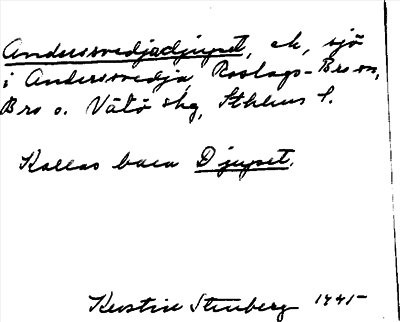 Andersvedjadjupet, ek, sjö
i Andersvedja, Roslags-Bro sn,
Bro o. Vätö skg, Sthlms l.
Kallas bara Djupet.
Kerstin Stenberg 1941-